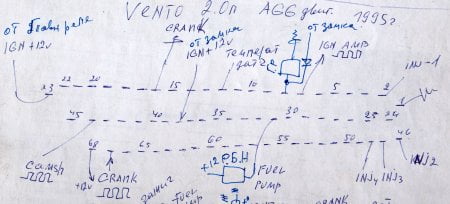 VENTO 2.0л AGG двиг. 1995г
от Главн реле
IGN +12v
CRANK
от замка
IGN +12v
температ
датч
от замка
IGN AMP
23 22 20 15 10 5 2 INJ-1
45 40 35 30 25 24
68 65 60 55 50 46
Camsh
+12v
CRANK
+12 Р.Б.Н
FUEL
PUMP
INJ4 INJ3
INJ2
FUEL